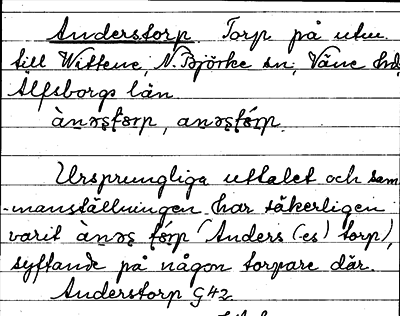 Anderstorp. Torp på utm.
till Wittene, N. Björke sn, Väne hd,
Älfsborgs län
ànəʂtɔrp, anəʂtɔ́rp.
Ursprungliga uttalet och sam-
manställningen har säkerligen
varit ànəʂ tɔ́rp (Anders (-es) torp),
syftande på någon torpare där.
Anderstorp G42